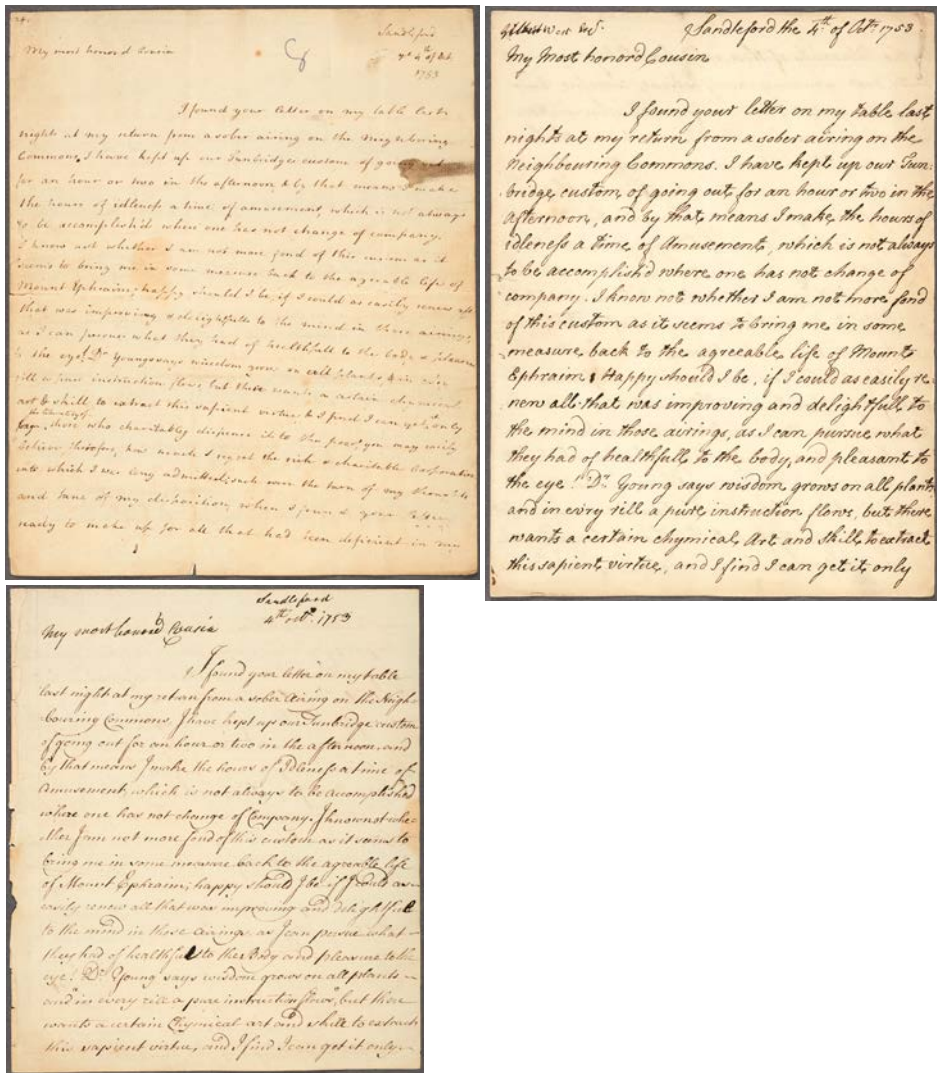 24.
Sandleford
ye 4th of Oct
1753
My most honord Cousin
I found your letter on my table last
night at my return from a sober airing on the Neighbouring
Commons, I have kept up our Tunbridge custom of going out
for an hour or two in the afternoon & by that means I make
the hours of idleness a time of amusement, which is not always
to be accomplish'd when one has not change of company.
I know not whether I am not more fond of this custom as it
seems to bring me in some measure back to the agreable life of
Mount Ephraim, happy should I be, if I could as easily renew all
that was improving & delightfull to the mind in these airings,
as I can pursue what they had of healthfull to the body & pleasant
to the eye! Dr Young says wisdom grows on all plants, & in every
rill a pure instruction flows, but there wants a certain chymical
art & skill to extract this sapient virtue & I find I can get it only
from those who charitably dispence it to the poor, you may easily
believe therefore, how much I regret the rich & charitable Corporation
into which I was long admitted; such were the turn of my thoughts
and tone of my disposition, when I found your letter
ready to make up for all that had been deficient in my
Gilbert West Esqr. Sandleford the 4th of Octr. 1753.
My Most honord Cousin
I found your letter on my table last
nights at my return from a sober airing on the
Neighbouring Commons. I have kept up our Tun-
bridge custom of going out for an hour or two in the
afternoon, and by that means I make the hours of
idleness a time of Amusement, which is not always
to be accomplish'd where one has not change of
company. I know not whether I am not more fond
of this custom as it seems to bring me in some
measure back to the agreeable life of Mount
Ephraim, Happy should I be, if I could as easily re-
new all that was improving and delightfull to
the mind in those airings, as I can pursue what
they had of healthfull to the body, and pleasant to
the eye! Dr. Young says wisdom grows on all plants
and in evry rill a pure instruction flows, but there
wants a certain chymical Art and skill to extract
this sapient virtue, and I find I can get it only
Sandleford
4th octr. 1753
My most honord Cousin
I found your letter on my table
last night at my return from a sober airing on the Neigh-
bouring Commons, I have kept up our Tunbridge custom
of going out for an hour or two in the afternoon, and
by that means I make the hours of Idleness a time of
Amusement, which is not always to be acomplished
where one has not change of Company. I know not whe-
ther I am not more fond of this custom as it seems to
bring me in some measure back to the agreable life
of Mount Ephraim; happy should I be if I could as
easily renew all that was improving and delightfull
to the mind in those airings, as I can pursue what
they had of healthfull to the Body and pleasure to the
eye! Dr. Young says wisdom grows on all plants
and in every rill a pure instruction flows, but there
wants a certain Chymical art and skill to extract
this sapient virtue, and I find I can get it only